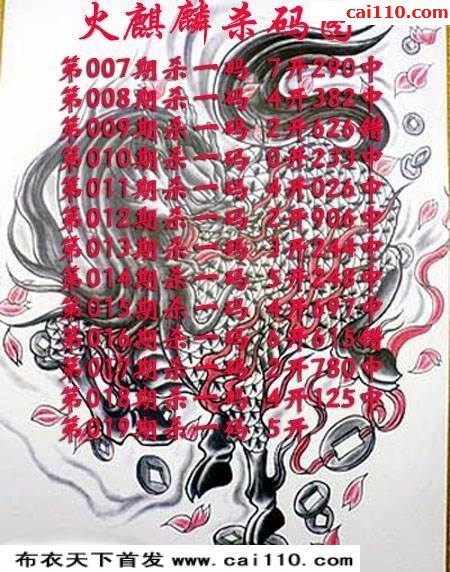 cai110.com
火麒麟杀码图
第007期杀一码 7开290中
第008期杀一码 4开382中
第009期杀一码 2开626错
第010期杀一码 0开233中
第011期杀一码 4开026中
第012期杀一码 2开906中
第013期杀一码 3开244中
第014期杀一码 5开248中
第015期杀一码 4开697中
第016期杀一码 6开615错
第017期杀一码 2开780中
第018期杀一码 4开125中
第019期杀一码 5开
布衣天下首发 www.cai110.com